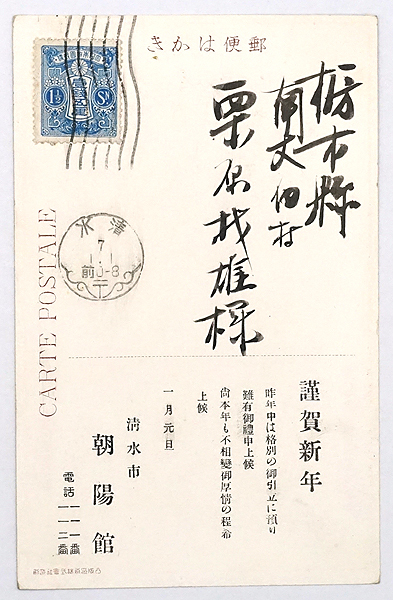 郵便はかき
1½ Sn
清水
7
1.1
前0-8
CARTE POSTALE
栃木縣
南犬飼村
栗原枝雄様
謹賀新年
昨年中は格別の御引立に預り
難有御禮申上候
尚本年も不相變御厚情の程希
上候
一月元旦
清水市
朝陽館
電話 一一一番
一一二番